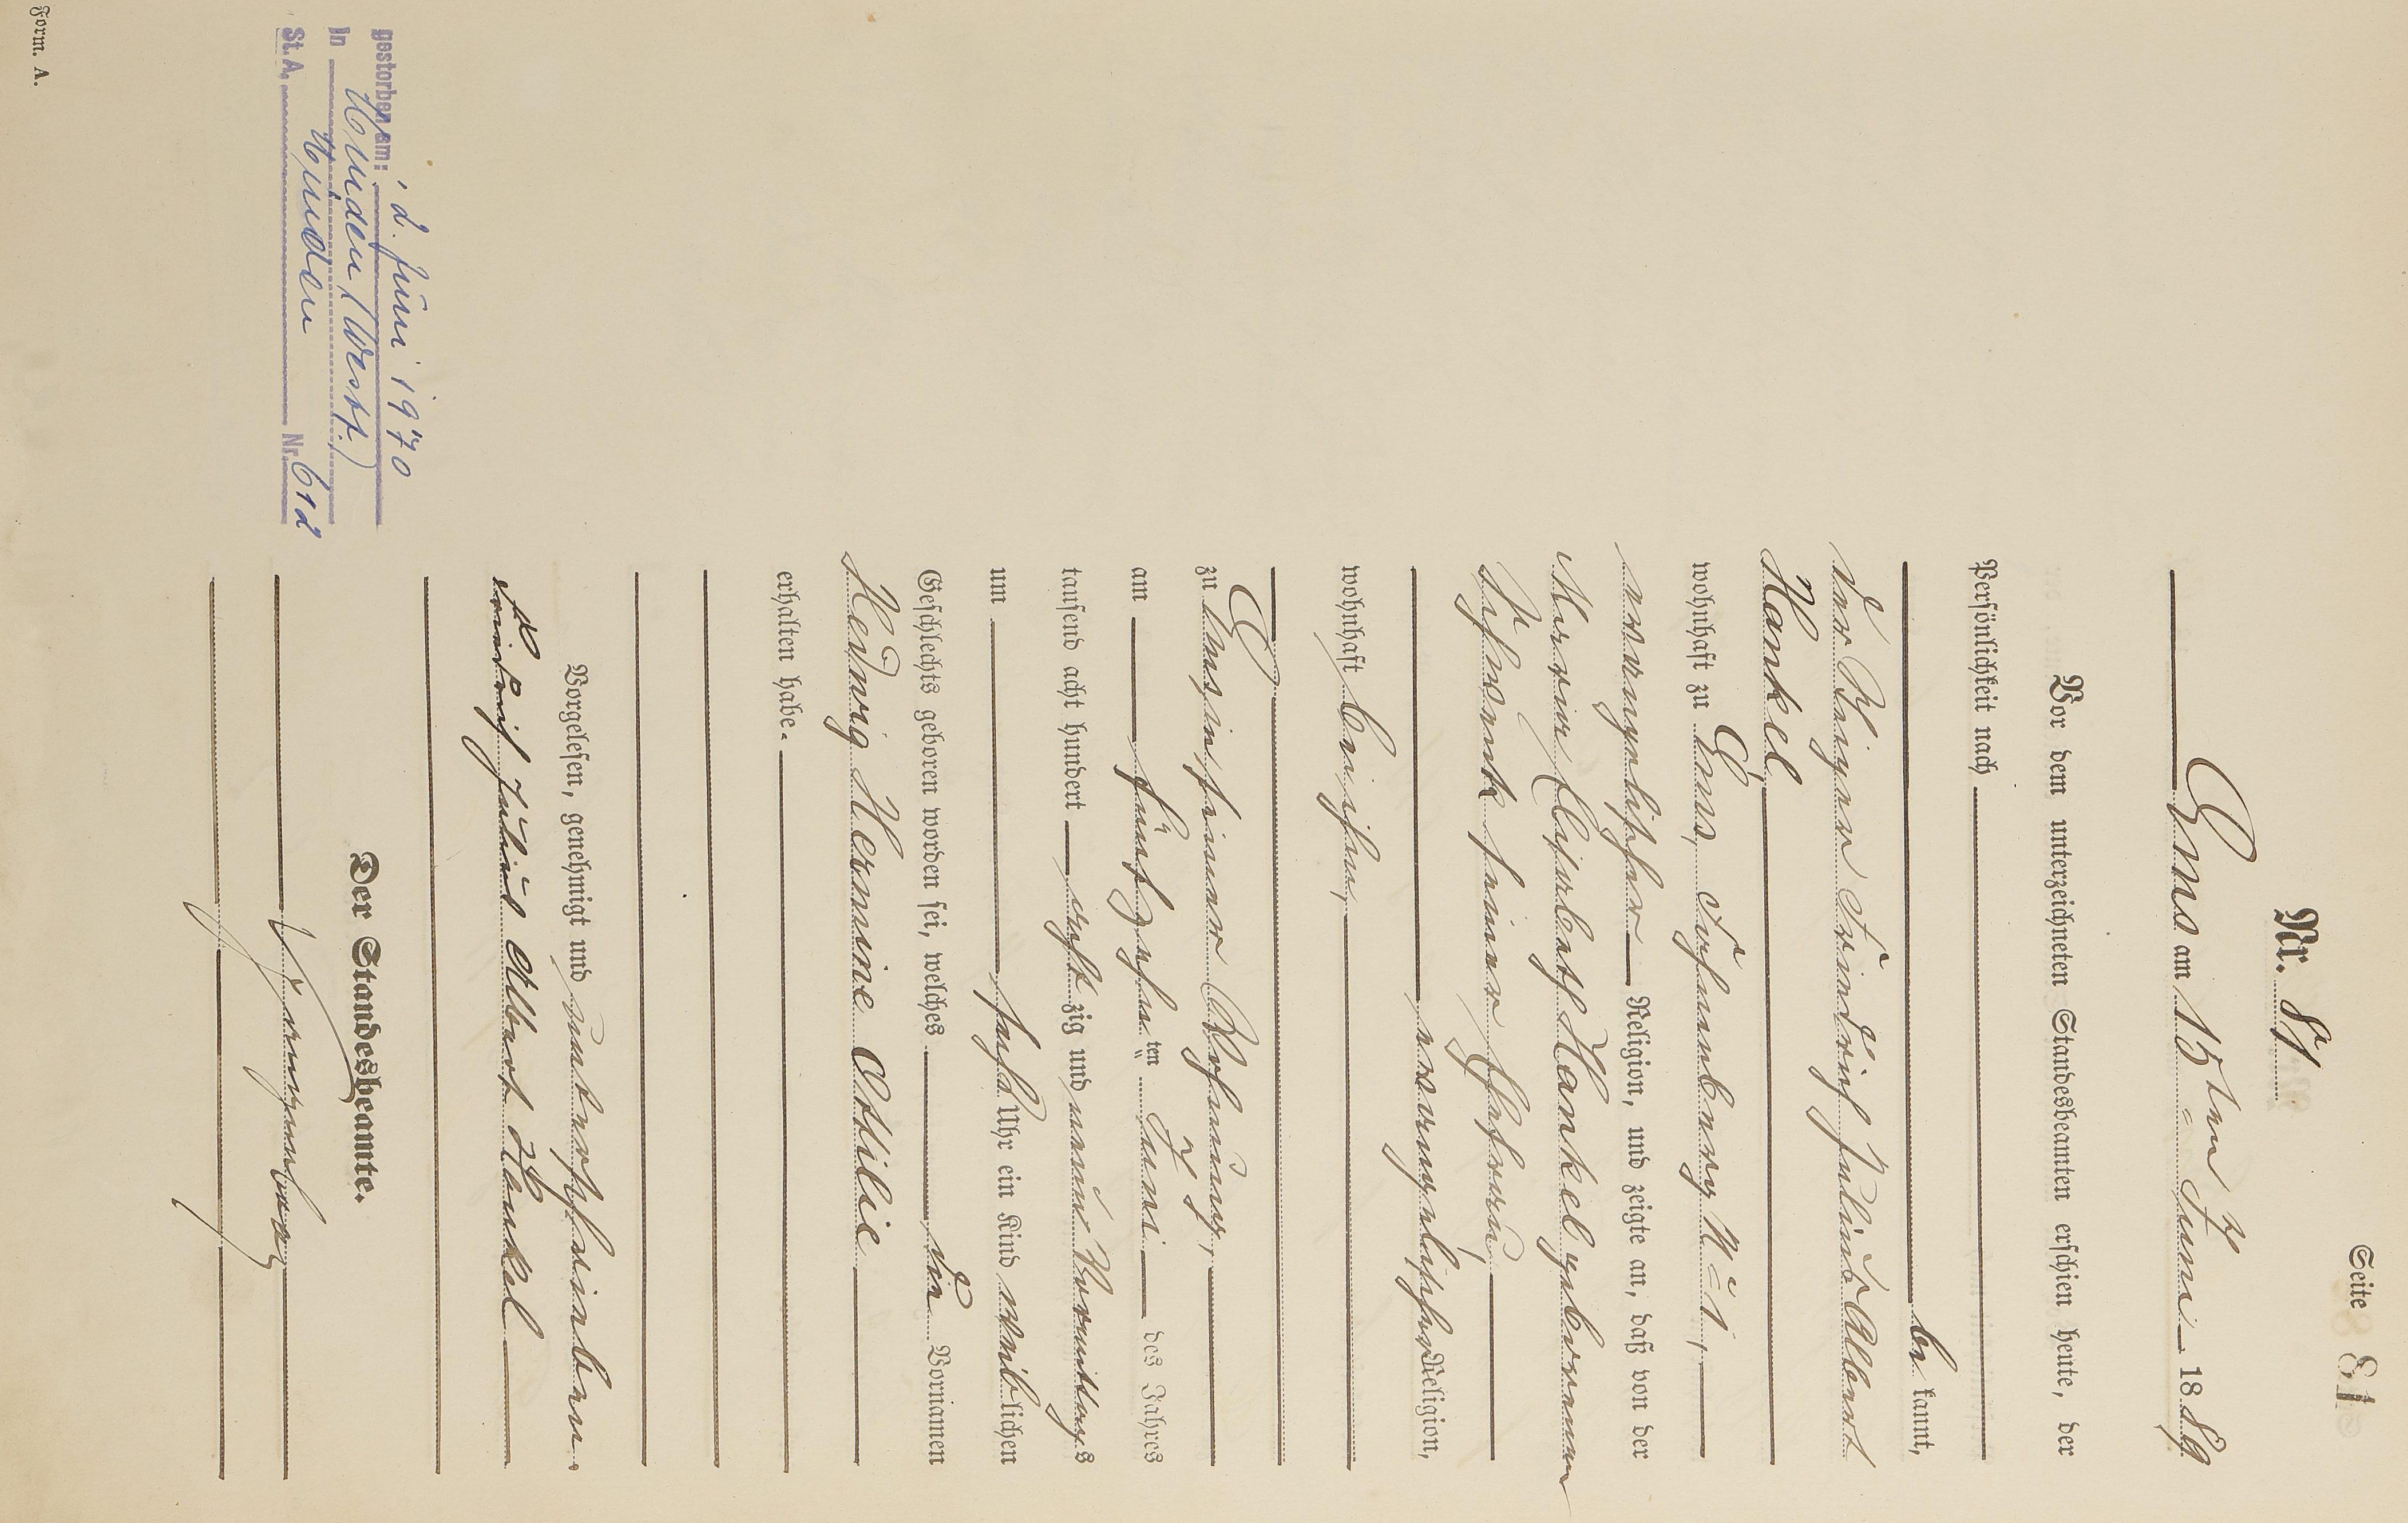 Seite 81
Nr. 81
Ems am 15ten Juni 1889
Vor dem unterzeichneten Standesbeamten erschien heute, der
Persönlichkeit nach
be kannt,
der Bergmann Friedrich Julius Albert
Hankel
wohnhaft zu Ems,
evangelischer Religion, und zeigte an, daß von der
Maria Elisabeth Hankel geborenen
Schwenk seiner Ehefrau,
evangelischer Religion,
wohnhaft bei ihm,
zu Ems in seiner Wohnung,
am fünfzehnten Juni des Jahres
tausend acht hundert achtzig und neun Vormittags
um sechs Uhr ein Kind weiblichen
Geschlechts geboren worden sei, welches die Vornamen
Hedwig Hermine Ottilie
erhalten habe.
Vorgelesen, genehmigt und unterschrieben.
Friedrich Julius Albert Hankel
Der Standesbeamte.
gestorben am: 2. Juni 1970
in Minden (Westf.)
St. A. Minden Nr. 612
Form. A.